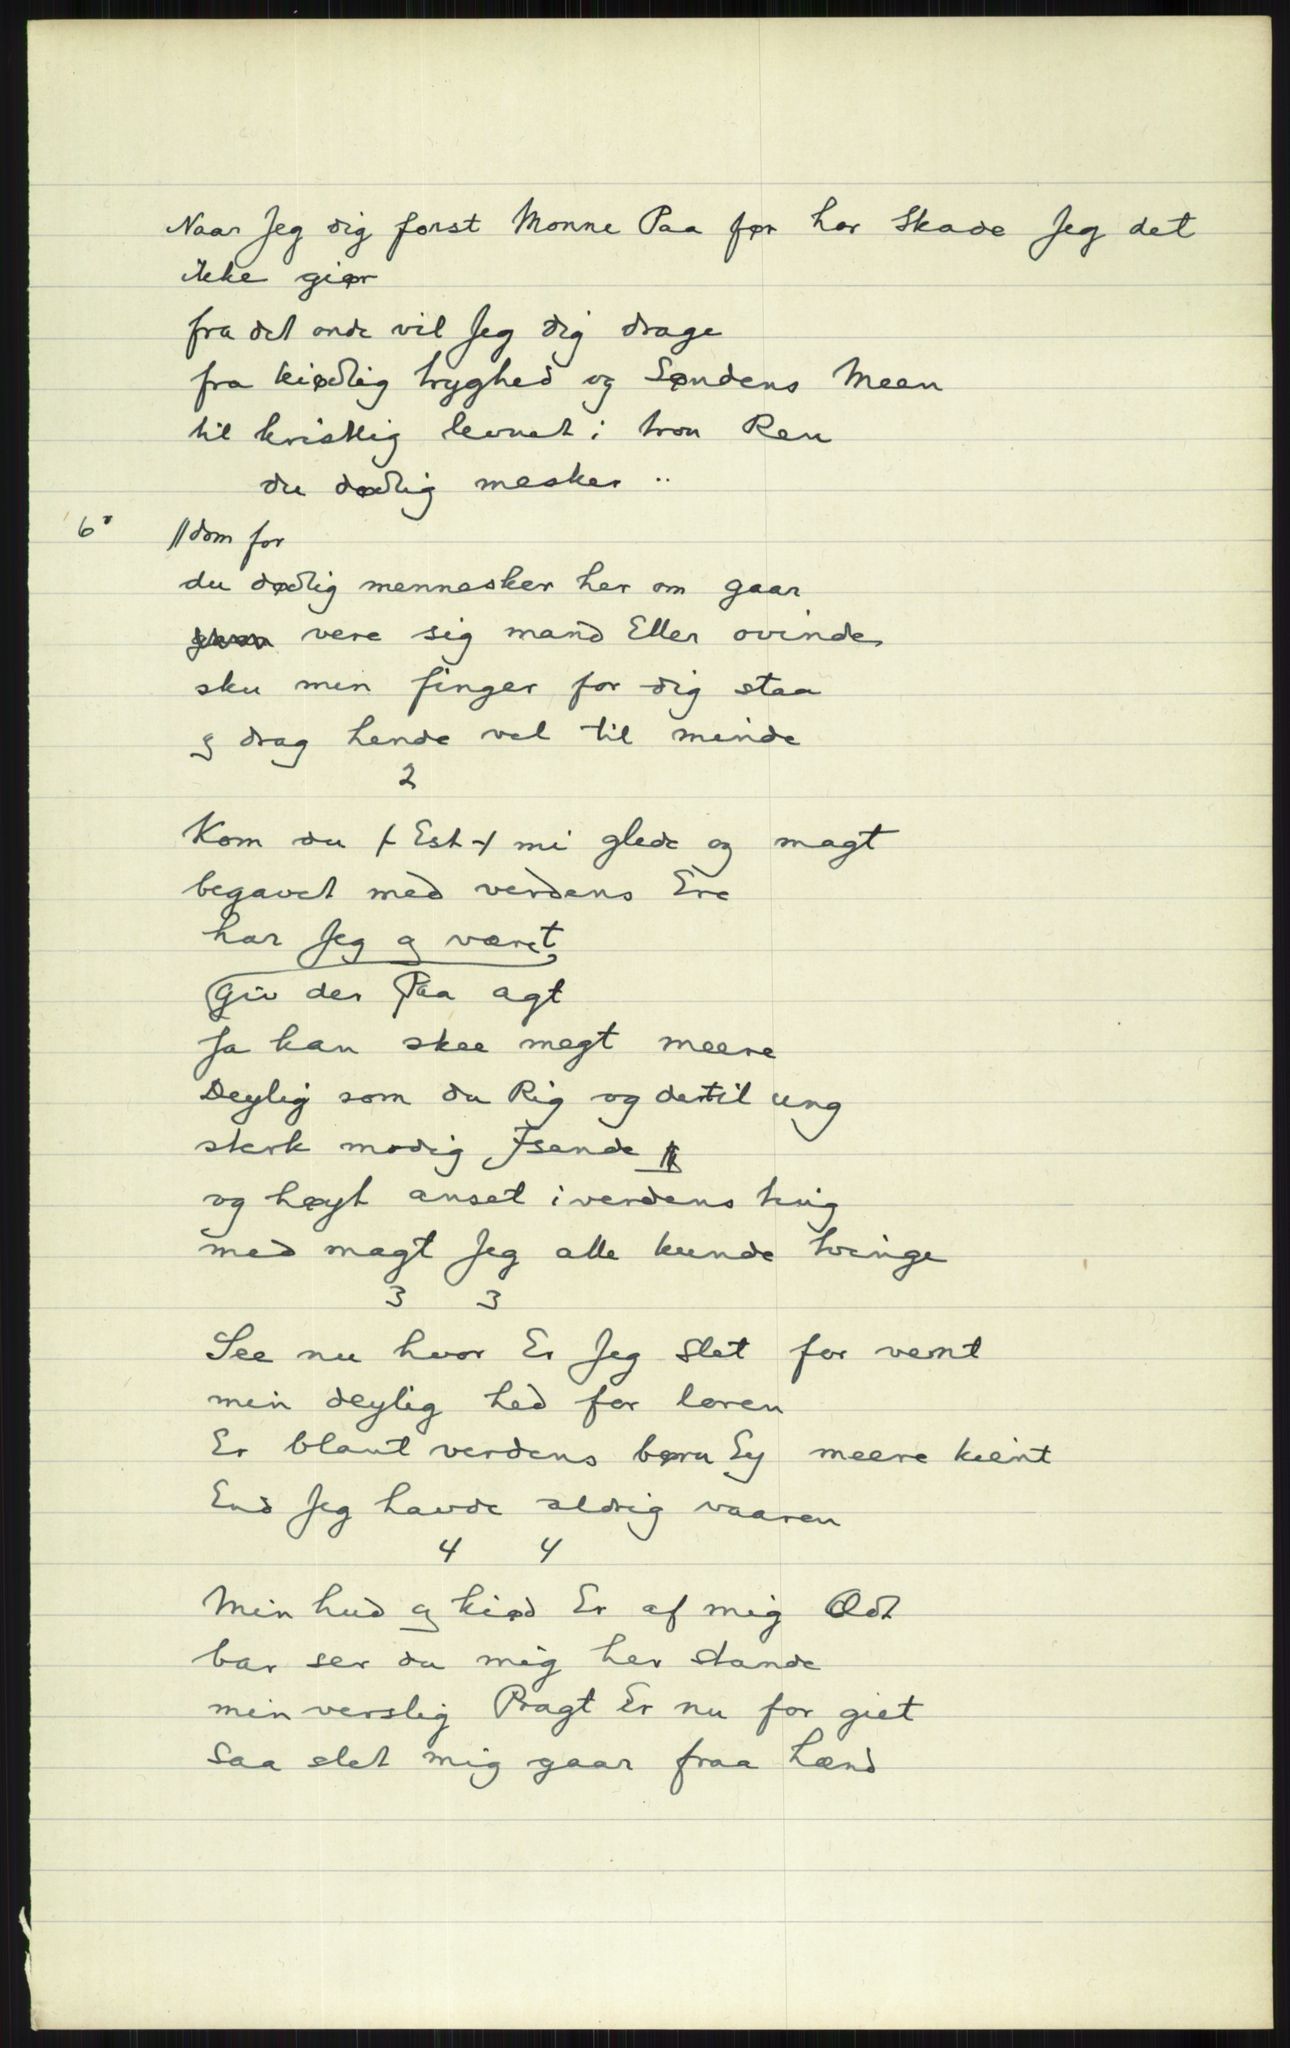 Naar Jeg dig forst Monne Paa før har Skade Jeg det
ikke giør
fra det onde vil Jeg dig drage
fra kiødlig tryghed og Søndens Meen
til kristlig levnet i tron Ren
du dødlig mesker ..
6v //dom for
du dødlig mennesker her om gaar
vere sig mand Eller qvinde
sku min finger for dig staa
og drag hende vel til minde
2
Kom du (- Est -) mi glede og magt
begavet med verdens Ere
har Jeg og været
Giv der Paa agt
Ja kan skee megt meere
Deylig som du Rig og dertil ung
sterk modig Isende //
og høyt anset i verdens ting
med magt Jeg alle kunde tvinge
3 3
See nu hvor Er Jeg Slet for vernt
min deylig hed for loren
Er blant verdens børn Ey meere kient
End Jeg havde aldrig vaaren
4 4
Min hud og kiød Er af mig Ædt
bar ser du mig her stande
min verslig Pragt Er nu for giet
Saa slet mig gaar fraa Hænd